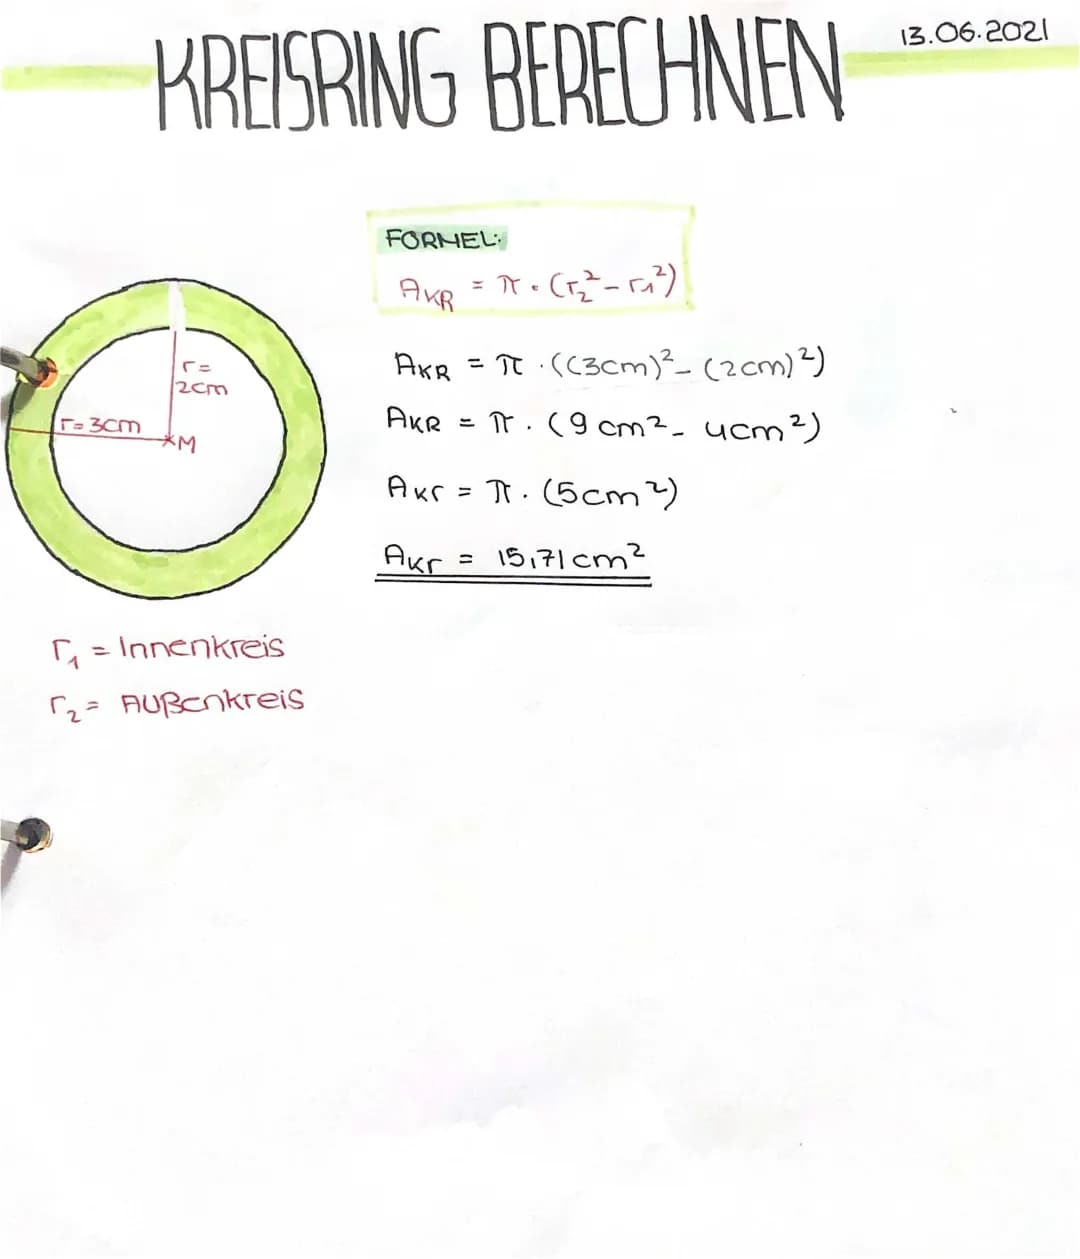 KREISRING BERECHNEN
13.06.2021
FORMEL:
A_KR = π · (r₂² - r₁²)
A_KR = π · ((3cm)² - (2cm)²)
A_KR = π · (9cm² - 4cm²)
A_Kr = π · (5cm²)
A_Kr = 15,71cm²
r=
2cm
r=3cm
M
r₁ = Innenkreis
r₂ = Außenkreis